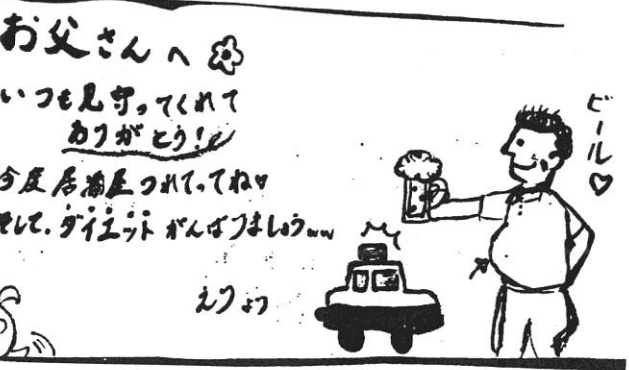 お父さんへ
いつも見守ってくれて
ありがとう!!
今度居酒屋つれてってね♡
そして、ダイエットがんばりましょうww
えりょり
ビール♡